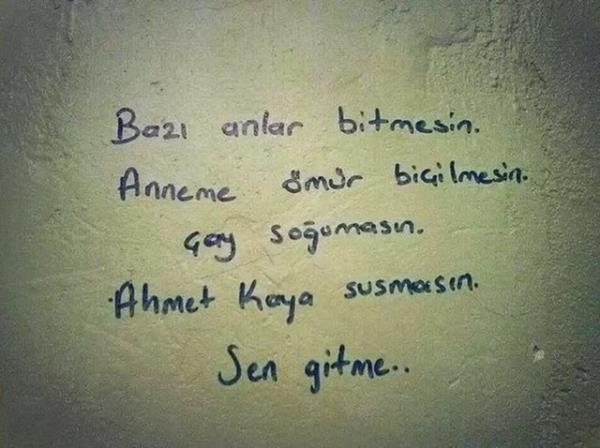 Bazı anlar bitmesin.
Anneme ömür biçilmesin.
Çay soğumasın.
Ahmet Kaya susmasın.
Sen gitme..